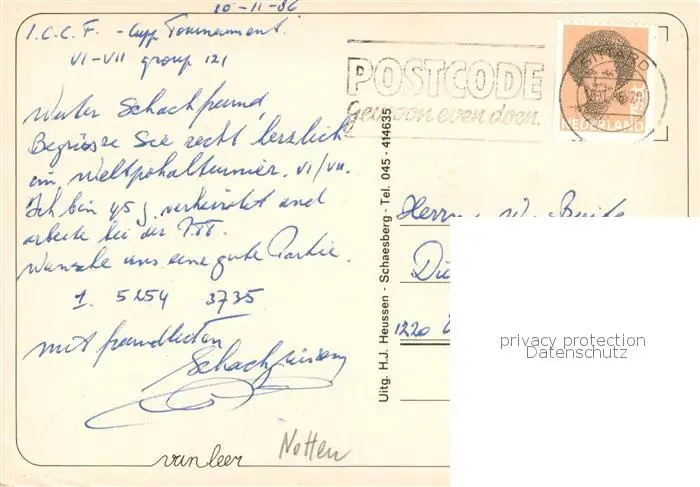 10-11-86
I.C.C.F. - Cupp Tournament
VI-VII group 121
Werter Schachfreund,
Begrüsse Sie recht herzlich
im Weltpokalturnier. VI/VII.
Ich bin 45 J. verheiratet und
arbeite bei der PTT.
Wünsche uns eine gute Partie.
1. 5254 3735
Mit freundlichen
Schachgrüssen
van leer
Notten
Uitg. H.J. Heussen - Schaesberg - Tel. 045 - 414635
POSTCODE
gewoon even doen.
SITTARD
NEDERLAND
Herrn W.
1220
privacy protection
Datenschutz